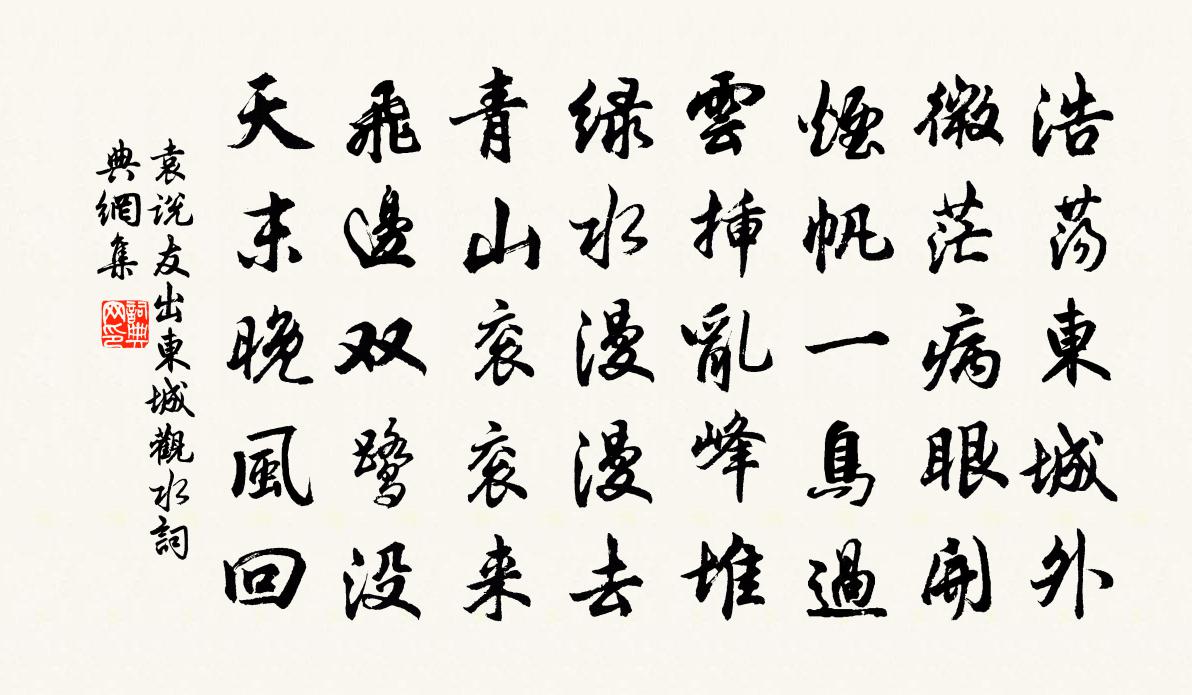 浩荡東城外
微茫病眼開
煙帆一鳥過
雲插亂峰堆
绿水漫漫去
青山衮衮来
飛邊双鹭没
天末晚風回
袁说友出東城觀水詞
典網集
詞典
网印